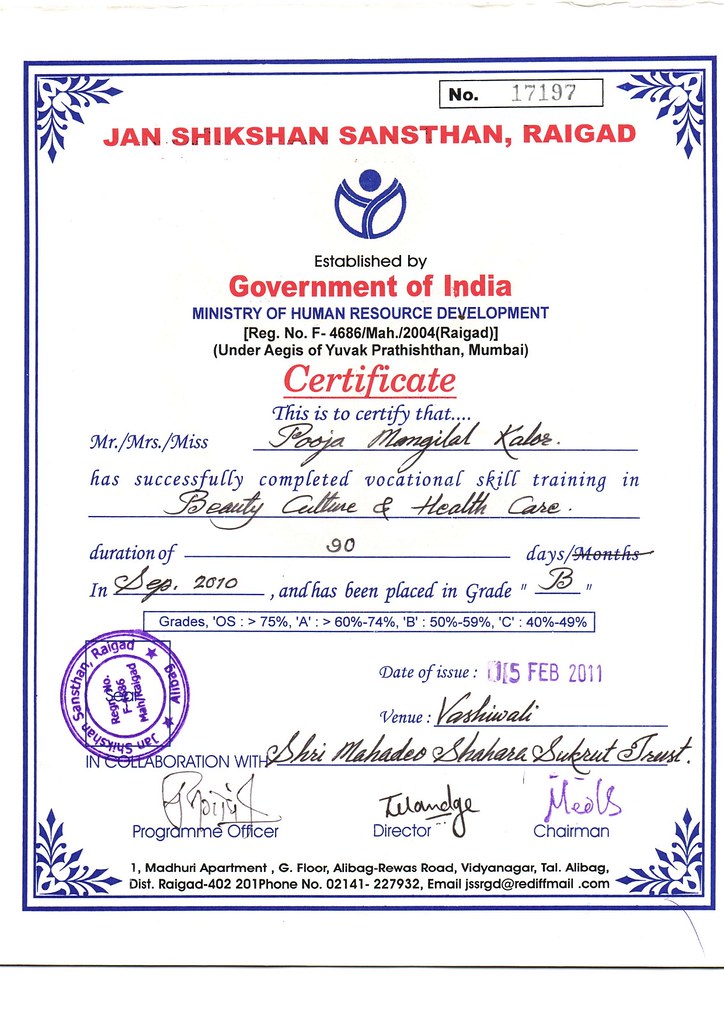 No. 17197
JAN SHIKSHAN SANSTHAN, RAIGAD
Established by
Government of India
MINISTRY OF HUMAN RESOURCE DEVELOPMENT
[Reg. No. F- 4686/Mah./2004(Raigad)]
(Under Aegis of Yuvak Prathishthan, Mumbai)
Certificate
This is to certify that....
Mr./Mrs./Miss Pooja Mangilal Kaloz.
has successfully completed vocational skill training in
Beauty Culture & Health Care.
duration of 90 days/Months
In Sep. 2010, and has been placed in Grade " B "
Grades, 'OS : > 75%, 'A' : > 60%-74%, 'B' : 50%-59%, 'C' : 40%-49%
Date of issue : 15 FEB 2011
Venue : Vashiwali
Jan Shikshan Sansthan, Raigad ★ Alibag ★
Regn. No.
F-4686
Mah/Raigad
IN COLLABORATION WITH Shri Mahadeo Shahara Sukrut Trust.
Programme Officer Director Chairman
1, Madhuri Apartment , G. Floor, Alibag-Rewas Road, Vidyanagar, Tal. Alibag,
Dist. Raigad-402 201Phone No. 02141- 227932, Email jssrgd@rediffmail .com